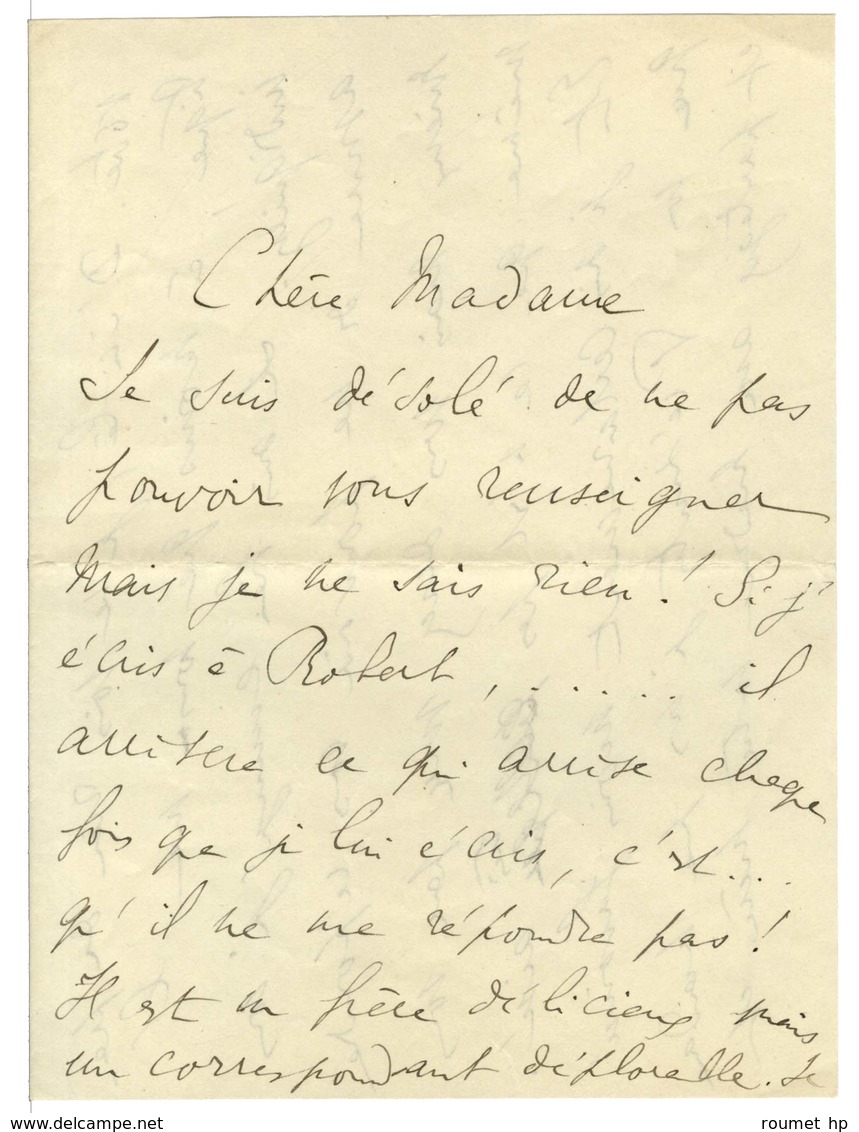 Chère Madame
Je suis désolé de ne pas
pouvoir vous renseigner
Mais je ne sais rien ! Si j'
écris à Robert, ....... il
arrivera ce qui arrive chaque
fois que je lui écris, c'est...
qu'il ne me répondra pas !
Il est un frère délicieux mais
un correspondant déplorable. Je
roumet hp